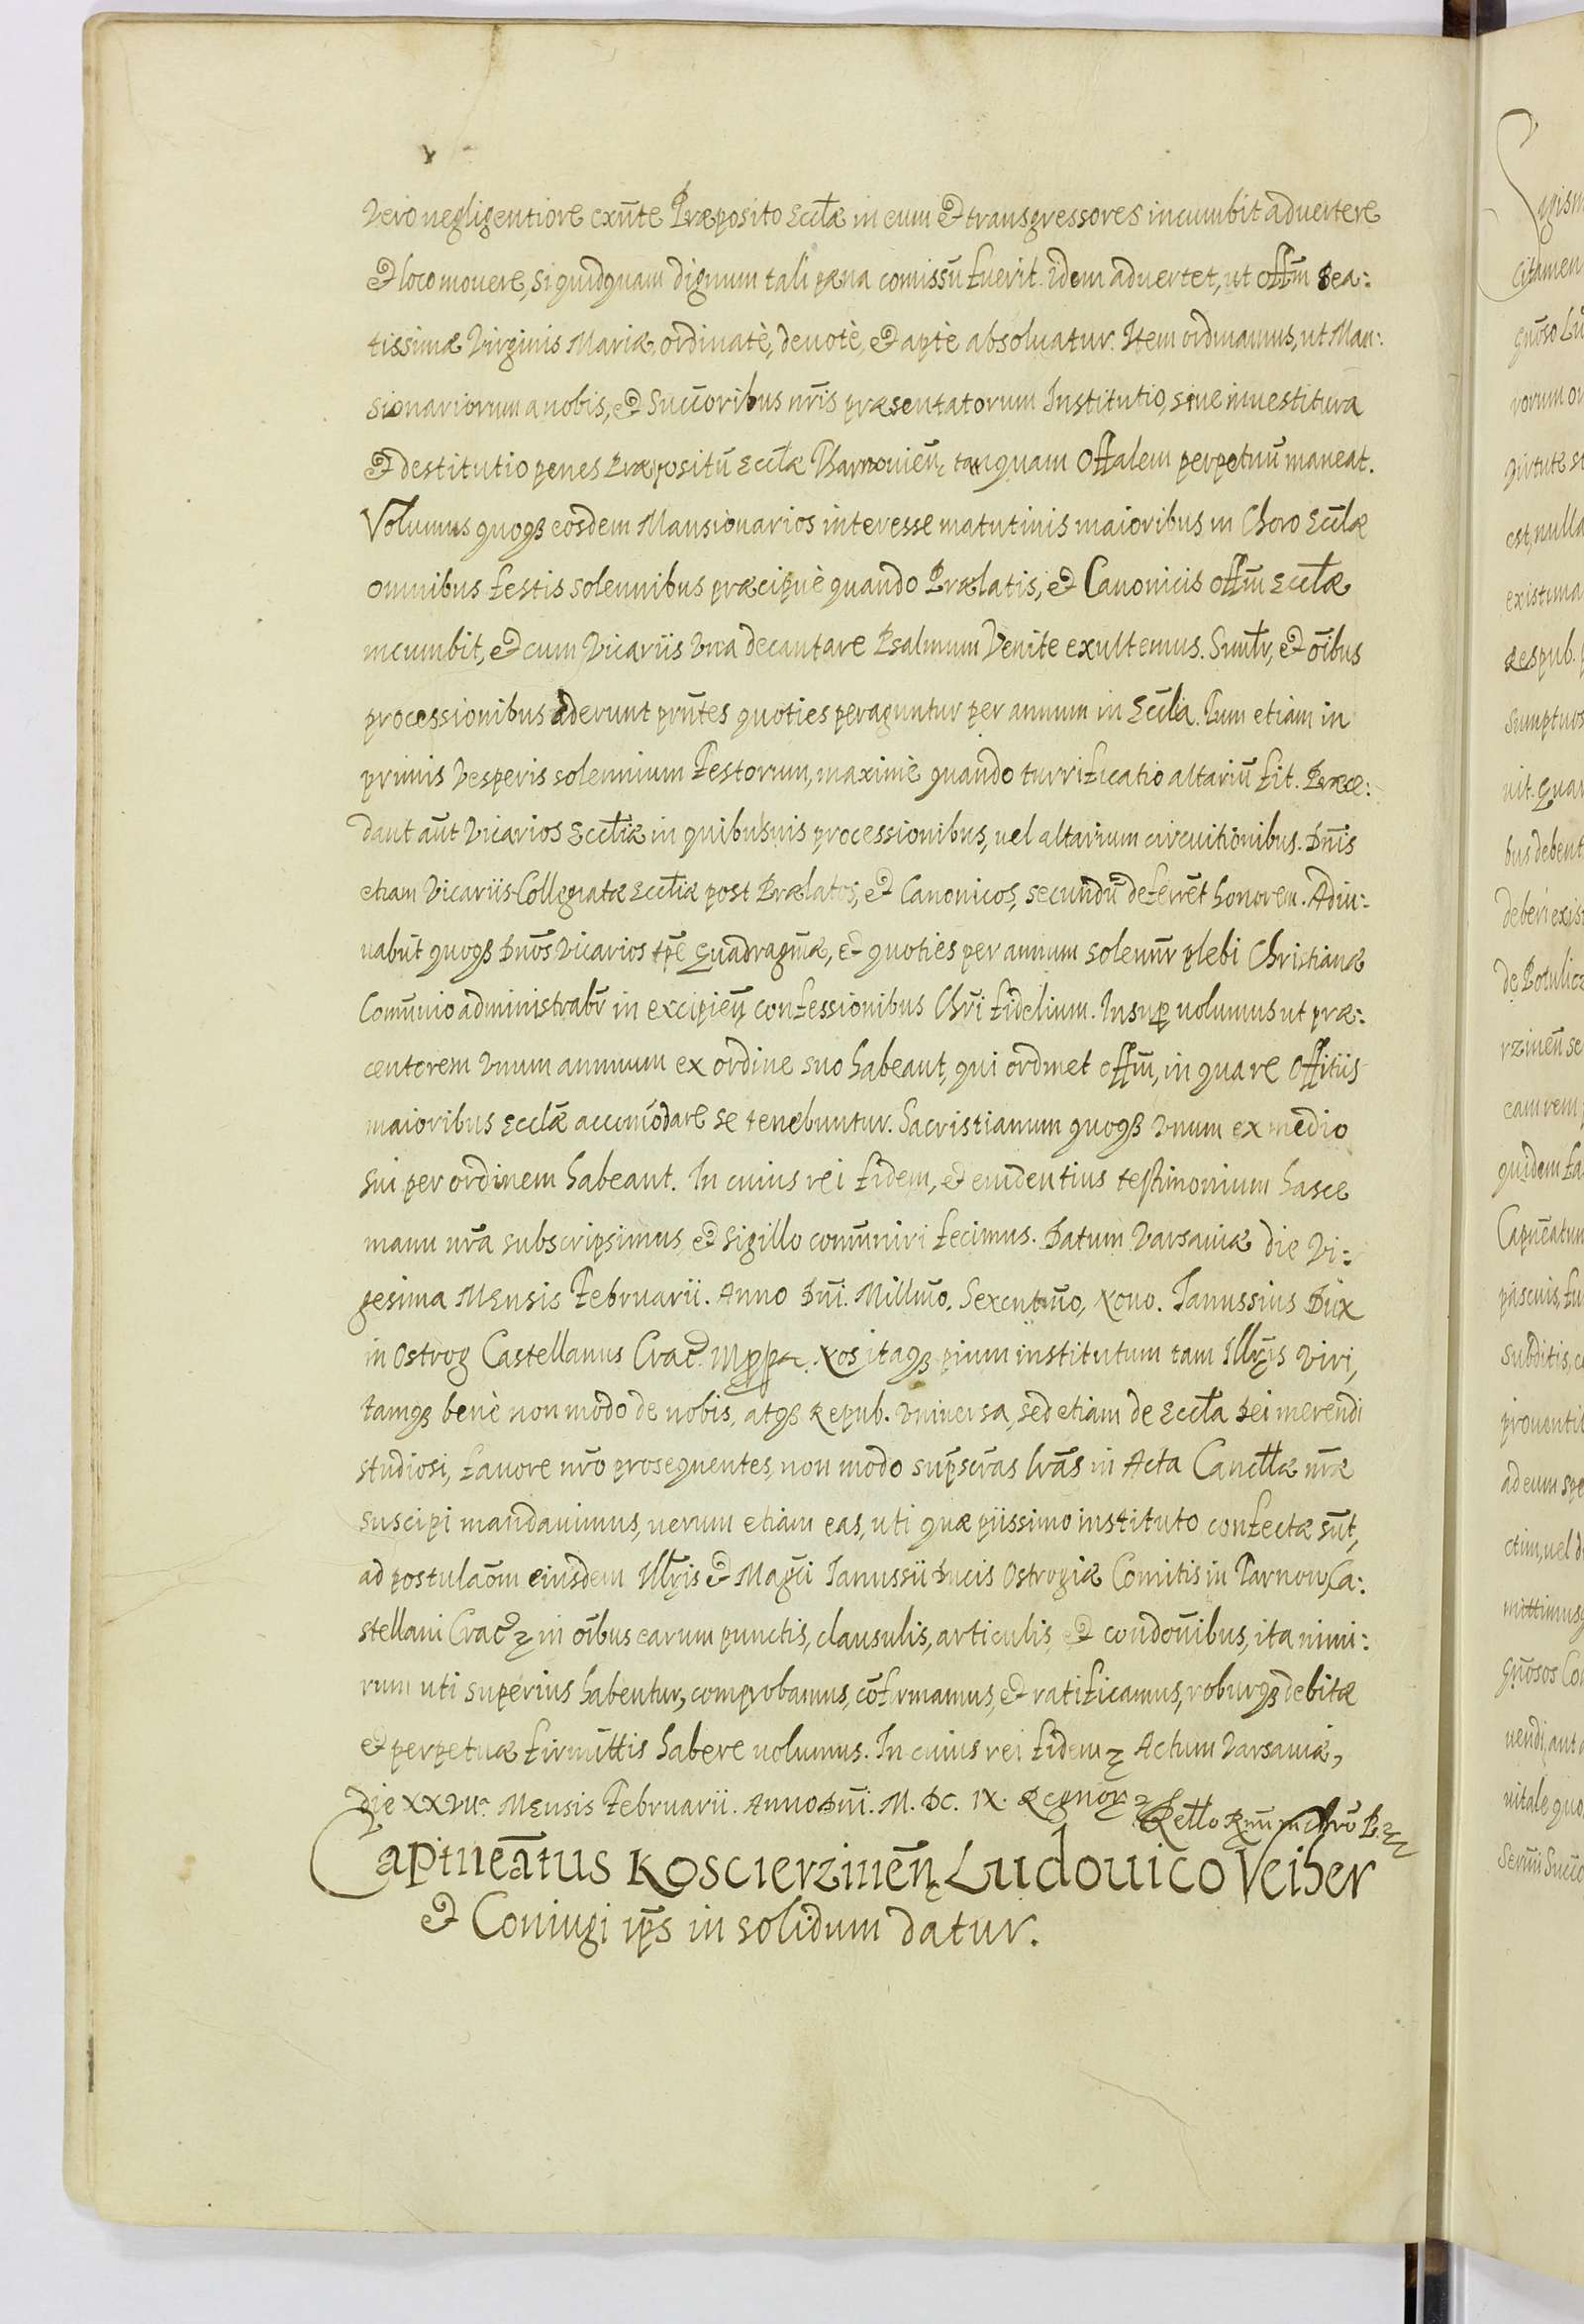 vero negligentiore exnte Præposito Ecclæ in eum et transgressores incumbit aduertere
et loco mouere, si quidquam dignum tali pæna comissū fuerit. idem aduertet, ut offm Bea:
tissimæ Virginis Mariæ, ordinatè, deuotè, et aptè absoluatur. Item ordinamus, ut Man:
sionariorum a nobis, et Succoribus nr̄is præsentatorum Institutio, siue inuestitura
et destitutio penes Præpositū Ecclæ Tharnouieñ, tanquam Offalem perpetuū maneat.
Volumus quoqз eosdem Mansionarios interesse matutinis maioribus in Choro Ecclæ
omnibus festis solennibus præcipuè quando Prælatis, et Canonicis offm Ecclæ
incumbit, et cum Vicariis vna decantare Psalmum Venite exultemus. Simlr, et oībus
processionibus aderunt prn̄tes quoties peraguntur per annum in Eccla. Tum etiam in
primis Vesperis solennium Festorum, maximè quando turrificatio altariū fit. Præce:
dant aūt Vicarios Eccliæ in quibusuis processionibus, uel altarium circuitionibus. Dn̄is
etiam Vicariis Collegiatæ Eccliæ post Prælatos, et Canonicos, secundū deferr̄et honorem. Adiu:
uabūt quoqз Dn̄os Vicarios tp̄e Quadragm̄æ, et quoties per annum solennr plebi Christianæ
Comūnio administrabr̄ in excipień confessionibus Chr̄i fidelium. Insup uolumus ut præ:
centorem vnum annuum ex ordine suo habeant, qui ordinet offm̄, in qua re Offitiis
maioribus Ecclæ accomōdare se tenebuntur. Sacristianum quoqз vnum ex medio
sui per ordinem habeant. In cuius rei fidem, et euidentius testimonium hasce
manu nr̄a subscripsimus et Sigillo comūniri fecimus. Datum Varsauiæ die Vi:
gesima Mensis Februarii. Anno Dn̄i. Millmō, Sexcntmō, Nono. Ianussius Dux
in Ostrog Castellanus Crac̄. Mppa. Nos itaqз pium institutum tam Illr̄is Viri,
tamqз benè non modo de nobis, atqз Repub. Vniuersa, sed etiam de Eccla Dei merendi
studiosi, fauore nr̄o prosequentes, non modo sup̄scr̄as lrās in Acta Cancllæ nr̄æ
suscipi mandauimus, uerum etiam eas, uti quæ piissimo instituto confectæ sūt,
ad postulaōm eiusdem Illr̄is et Magci Ianussii Ducis Ostrogiæ Comitis in Tarnow, Ca:
stellani Crac̄ in oībus earum punctis, clausulis, articulis et condoīibus, ita nimi:
rum uti superius habentur, comprobamus, cōfirmamus, et ratificamus, roburqз debitæ
et perpetuæ firmittis habere uolumus. In cuius rei fidem Actum Varsauiæ,
Die XXVIIa. Mensis Februarii. Anno Dn̄i. M. DC. IX. Regnor
Capitneātus Koscierzineń Ludouico Veiher
et Coniugi ip̄s in solidum datur.